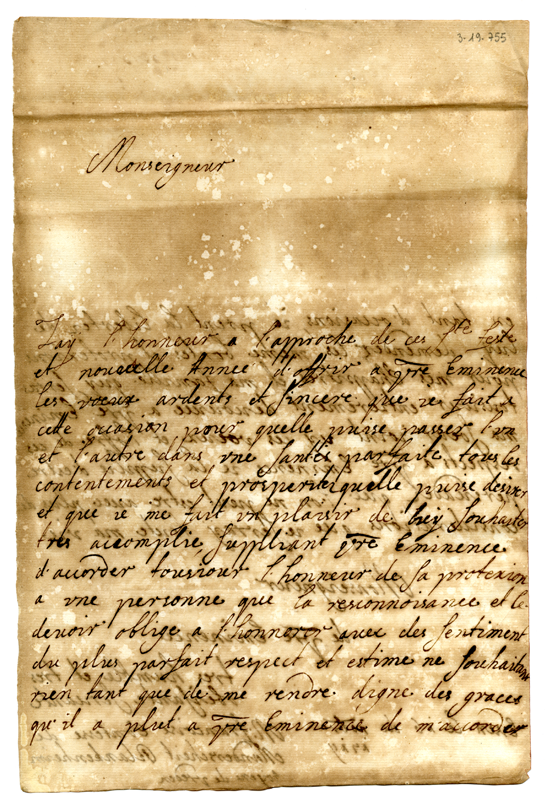 3-19-755
Monseigneur
J'ay l'honneur a l'approche de ces Stes feste
et nouvelle Année d'offrir a vre Eminence
les voeux ardents et sincere que ie fait a
cette ocasion pour quelle puise passer l'vn
et l'autre dans vne santé parfaite tous les
contentements et prosperité quelle puise desirer
et que ie me fait vn plaisir de luy souhaiter
tres acomplie suppliant vre Eminence
d'acorder tousiour l'honneur de sa protexion
a vne personne que la resconnoisance et le
devoir oblige a l'honnerer avex des sentiment
du plus parfait respect et estime ne souhaitant
rien tant que de me rendre digne des graces
qu'il a plut a vre Eminence de m'acorder